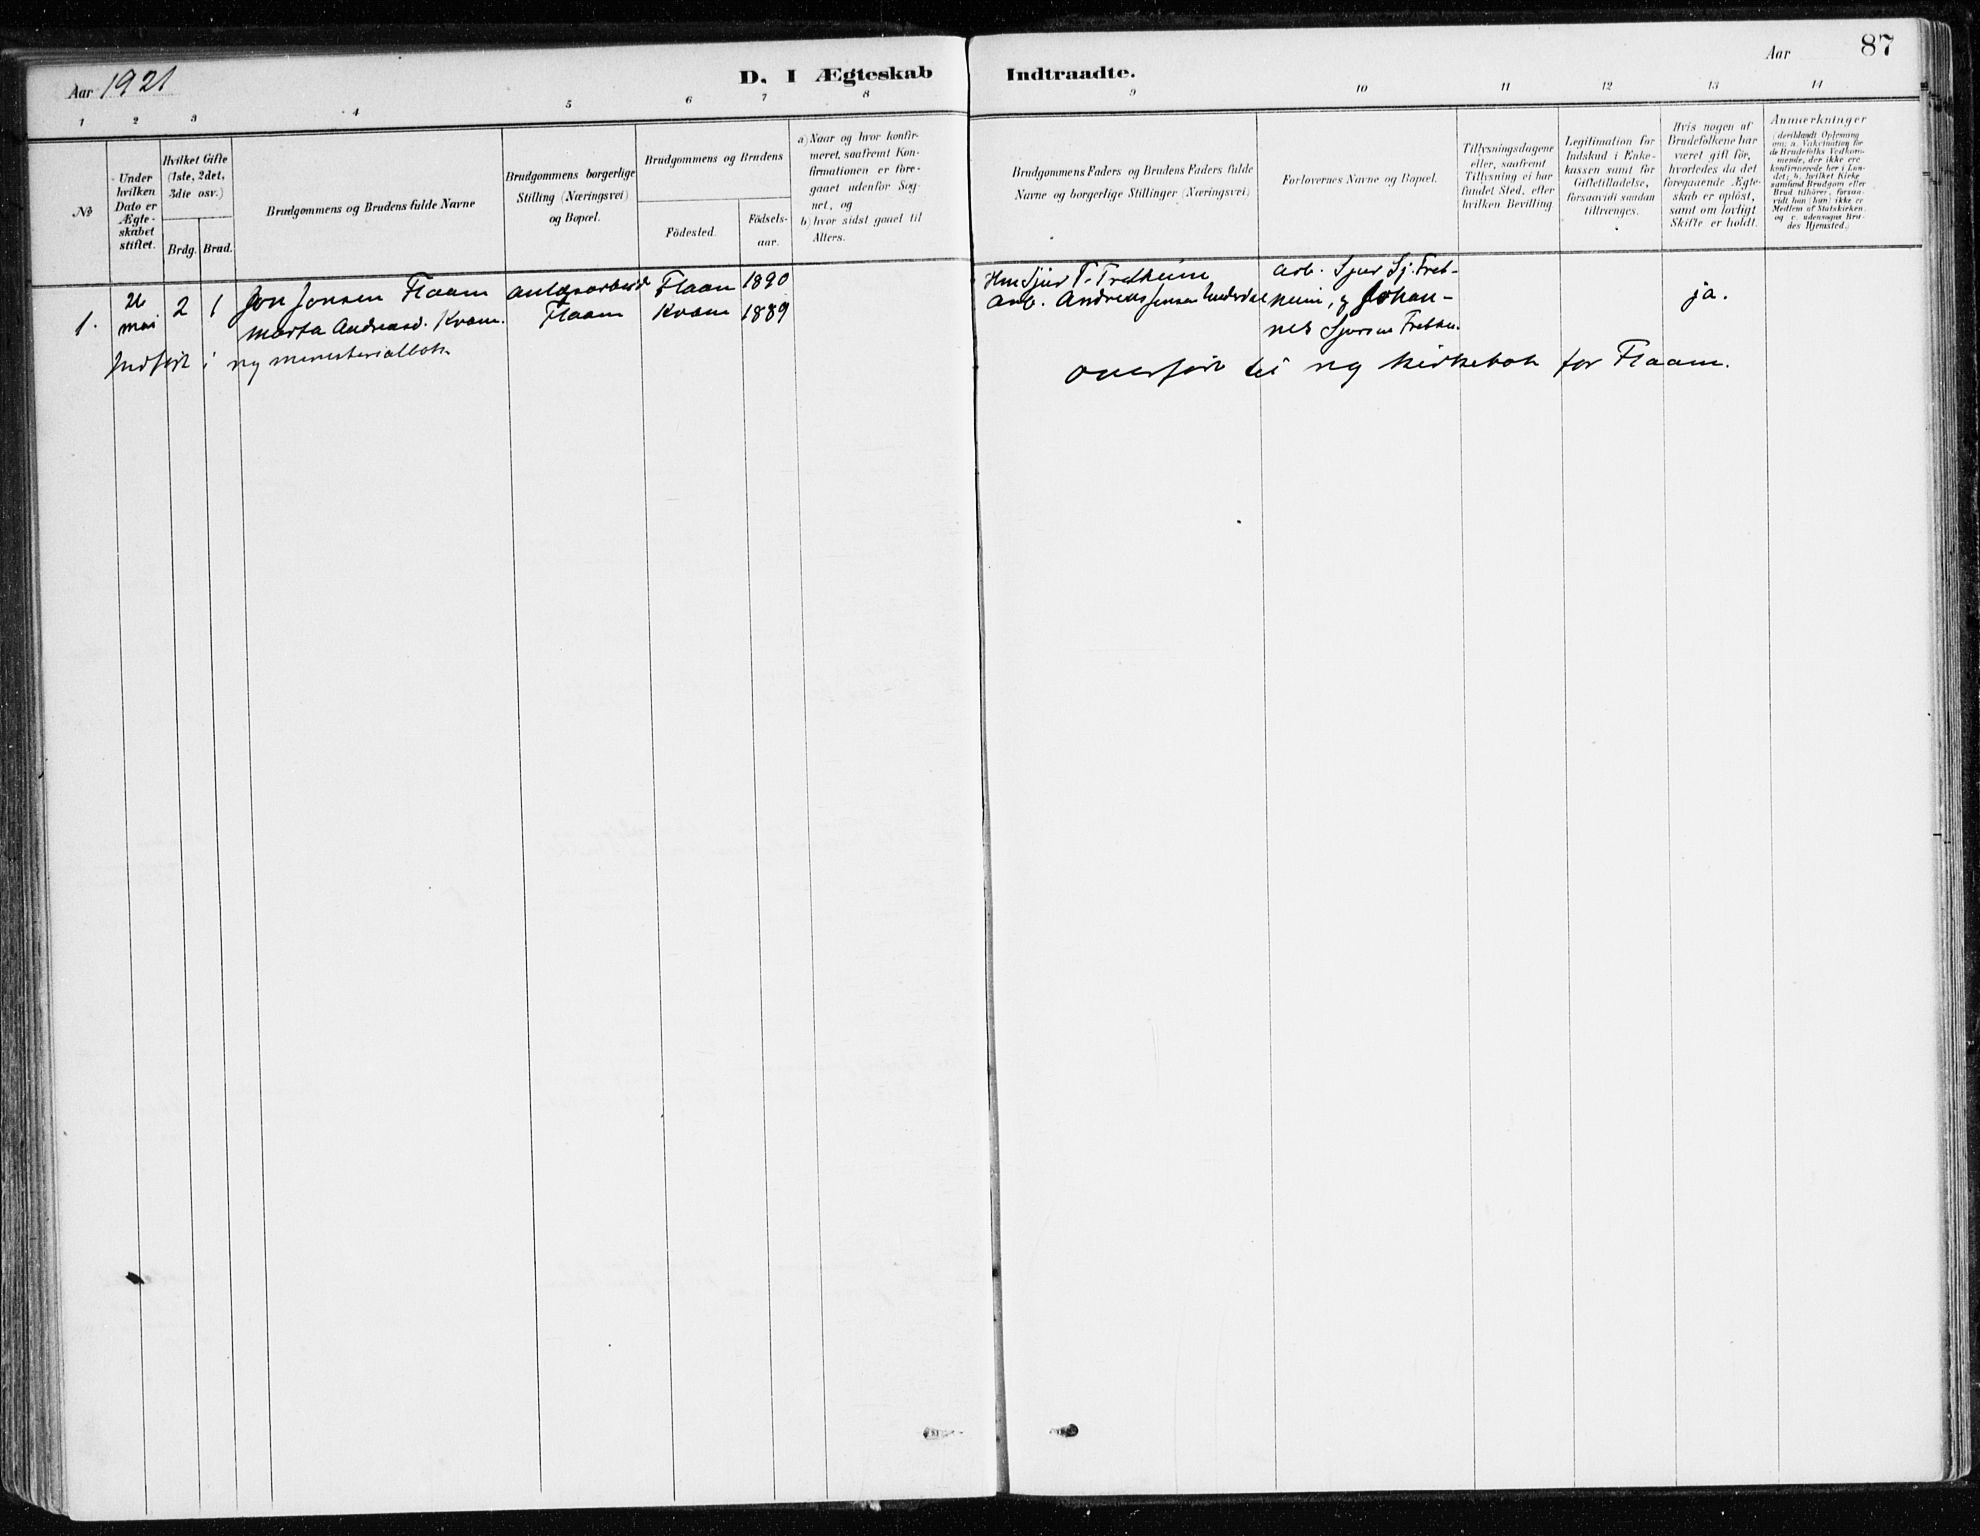 Aar 1921
D. I Ægteskab
Indtraadte.
Aar
87
1 2 3 4 5 6 7 8 9 10 11 12 13 14
No
Under hvilken Dato er Ægteskabet stiftet.
Hvilket Gifte (1ste, 2det, 3die osv.)
Brdg.
Brud.
Brudgommens og Brudens fulde Navne
Brudgommens borgerlige Stilling (Næringsvei) og Bopæl.
Brudgommens og Brudens
Födested.
Födsels-aar.
a) Naar og hvor konfir-
meret, saafremt Kon-
firmationen er fore-
gaaet udenfor Sog-
net, og
b) hvor sidst gaaet til
Alters.
Brudgommens Faders og Brudens Faders fulde
Navne og borgerlige Stillinger (Næringsvei)
Forlovernes Navne og Bopæl.
Tillysningsdagene
eller, saafremt
Tillysning ei har
fundet Sted, efter
hvilken Bevilling
Legitimation for
Indskud i Enke-
kassen samt for
Giftetilladelse,
forsaavidt saadan
tiltrænges.
Hvis nogen af
Brudefolkene har
været gift för,
hvorledes da det
foregaaende Ægte-
skab er oplöst,
samt om lovligt
Skifte er holdt.
Anmærkninger
(deriblandt Oplysning
om: a. Vakcination for
de Brudefolks Vedkom-
mende, der ikke ere
konfirmerede her i Lan-
det; b. hvilket Kirke
samfund Brudgom eller
Brud tilhörer, forsaa-
vidt han (hun) ikke er
Medlem af Statskirken,
og c. udensogns Bru-
des Hjemsted.)
1.
mai
2
1
Jon Jonsen Flaam
Marta Andreasd. Kvam.
anlægsarbeid
Flaam
Flaam 1890
Kvam 1889
Sjur T. Fretheim
Arb. Andreas Jensen
Arb. Sjur Sj. Fret-
heim, og Johan-
nes Sjursen
ja.
Indført i ny ministerialbok
overført til ny kirkebok for Flaam.